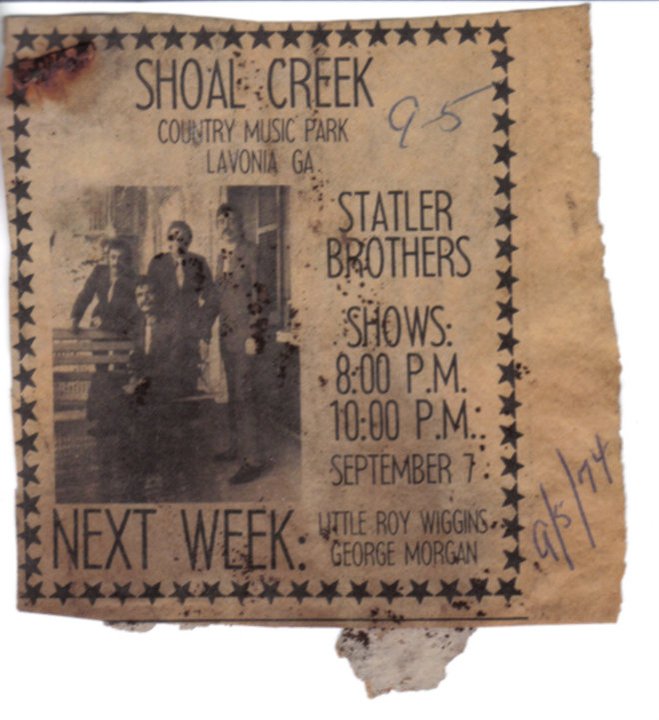 SHOAL CREEK
COUNTRY MUSIC PARK
LAVONIA GA
95
STATLER
BROTHERS
SHOWS:
8:00 P.M.
10:00 P.M.
SEPTEMBER 7
NEXT WEEK:
LITTLE ROY WIGGINS
GEORGE MORGAN
9/5/74